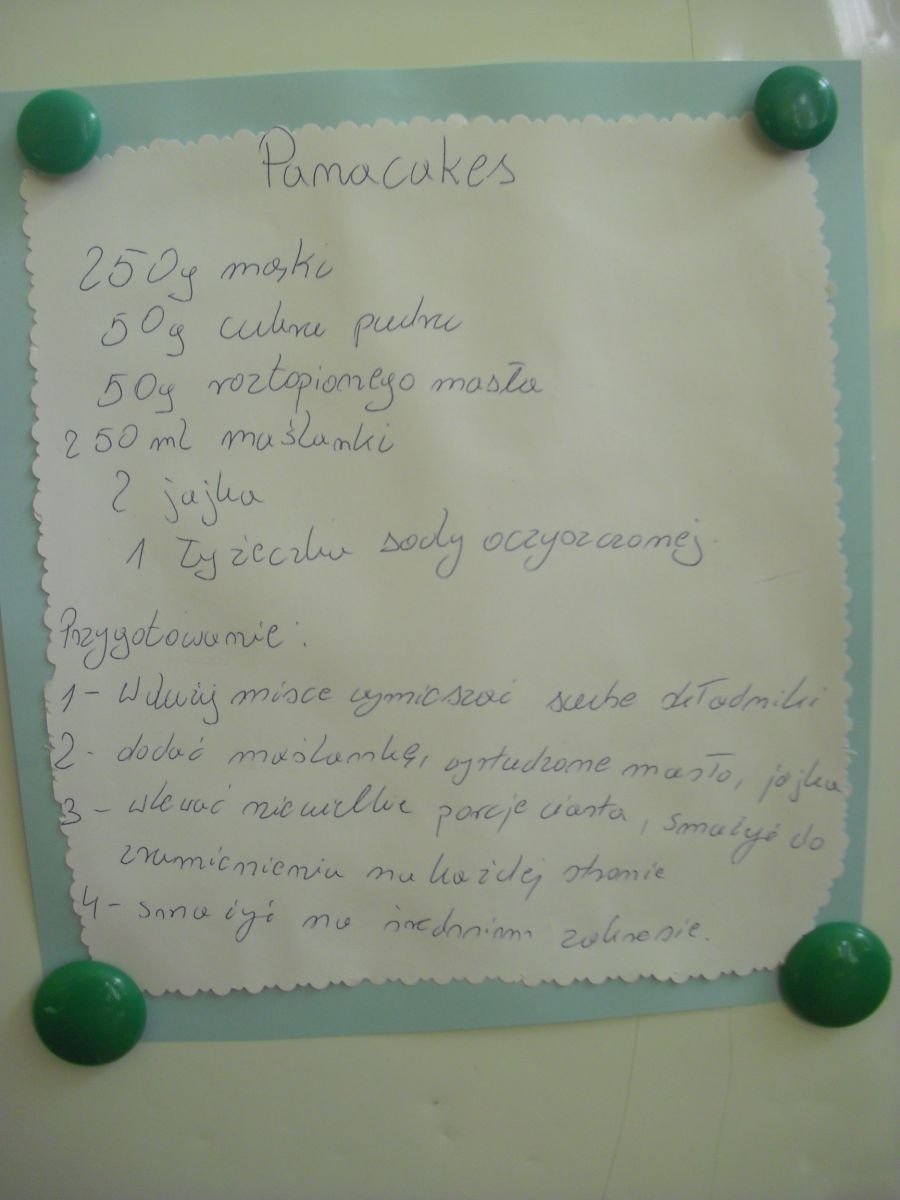 Panacakes
250g mąki
50g cukru pudru
50g roztopionego masła
250 ml maślanki
2 jajka
1 łyżeczka sody oczyszczonej.
Przygotowanie:
1- W dużej misce wymieszać suche składniki
2- dodać maślankę, wystudzone masło, jajka
3- wlewać niewielkie porcje ciasta, smażyć do
zrumienienia na każdej stronie
4- smażyć na średnim zakresie.